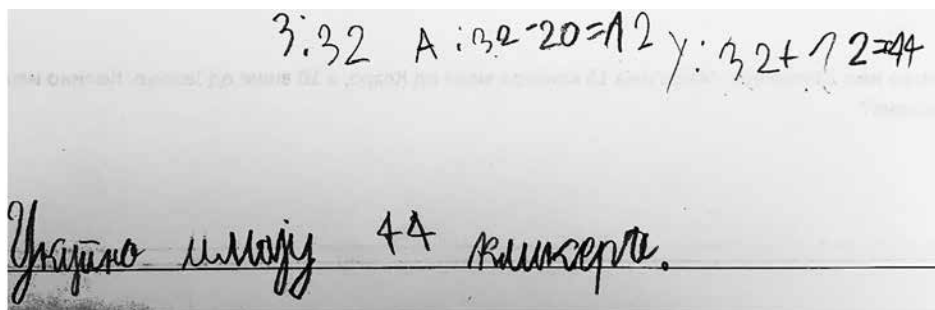 З:32 А:32-20=12 У: 32+12=44
Укупно имају 44 кликера.